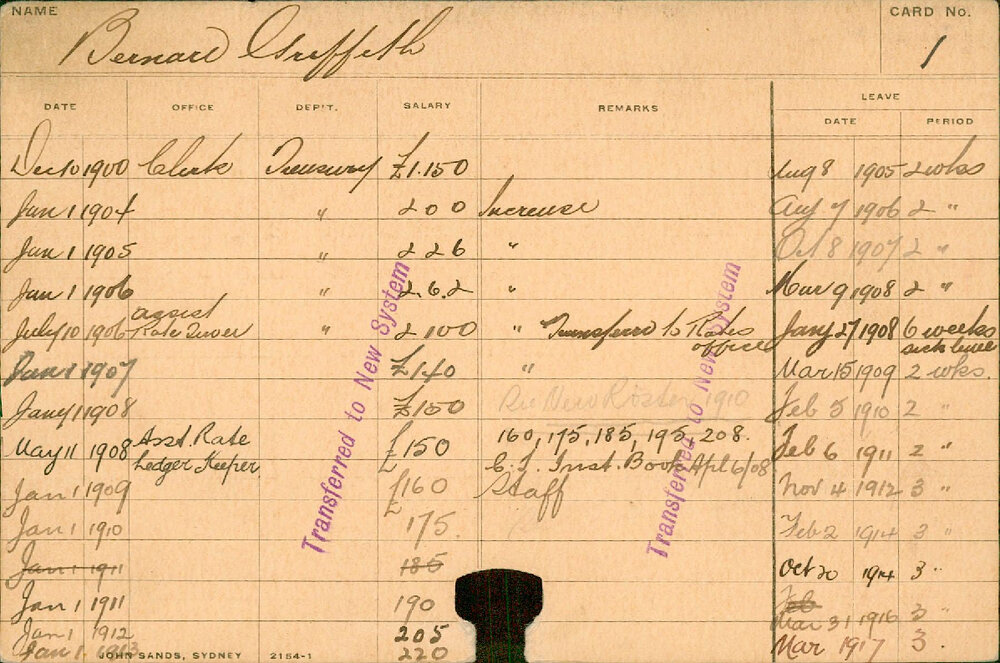 NAME
Bernard Griffith
CARD No.
1
DATE OFFICE DEP'T. SALARY REMARKS LEAVE
DATE PERIOD
Dec 10 1900 Clerk Treasury £1.150 Aug 8 1905 2 wks
Jan 1 1904 " 200 Increase Aug 7 1906 2 "
Jan 1 1905 " 226 " Oct 8 1907 2 "
Jan 1 1906 " 2.6.2 " Mar 9 1908 2 "
July 10 1906 assist Rate " 2100 " Transferred to Rates office Jany 27 1908 6 weeks sick leave
Jan 1 1907 £140 " Mar 15 1909 2 wks.
Jany 1 1908 £150 Re New Roster 1910 Feb 5 1910 2 "
May 11 1908 Asst. Rate Ledger Keeper £150 160, 175, 185, 195, 208. Feb 6 1911 2 "
Inst. Book Apl 6/08
Jan 1 1909 £160 Staff Nov 4 1912 3 "
Jan 1 1910 175. Feb 2 1914 3 "
Jan 1 1911 185 Oct 20 1914 3 "
Jan 1 1911 190 Feb
Mar 31 1916 3 "
Jan 1 1912 205 Mar 1917 3.
Jan 1. 1913 220
Transferred to New System
Transferred to New System
JOHN SANDS, SYDNEY 2154-1